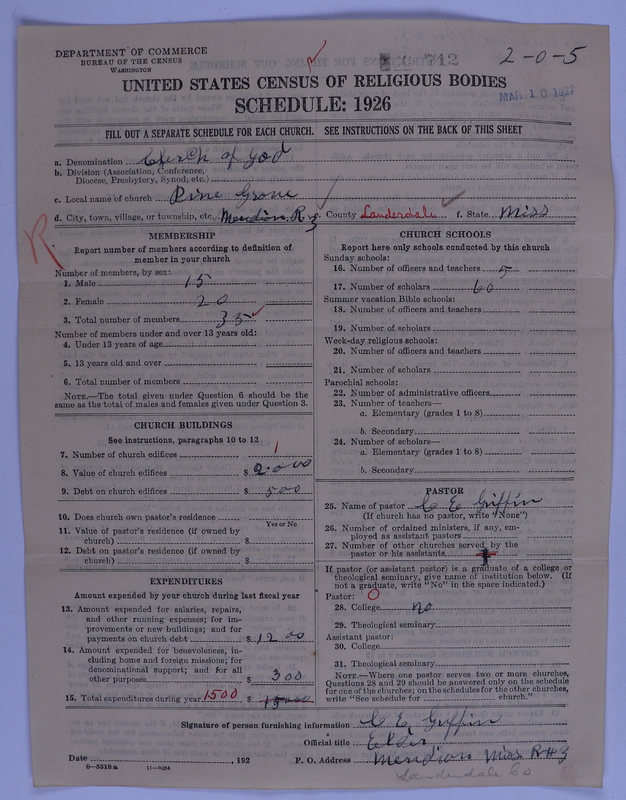 DEPARTMENT OF COMMERCE
BUREAU OF THE CENSUS
WASHINGTON
712
2-0-5
UNITED STATES CENSUS OF RELIGIOUS BODIES
MAR 10 1927
SCHEDULE: 1926
FILL OUT A SEPARATE SCHEDULE FOR EACH CHURCH. SEE INSTRUCTIONS ON THE BACK OF THIS SHEET
a. Denomination Church of God
b. Division (Association, Conference,
Diocese, Presbytery, Synod, etc.)
c. Local name of church Pine Grove
d. City, town, village, or township, etc. Meridian, R. 3 County Lauderdale f. State Miss
R.
MEMBERSHIP
Report number of members according to definition of
member in your church
Number of members, by sex:
1. Male 15
2. Female 20
3. Total number of members 35
Number of members under and over 13 years old:
4. Under 13 years of age
5. 13 years old and over
6. Total number of members
NOTE.—The total given under Question 6 should be the
same as the total of males and females given under Question 3.
CHURCH BUILDINGS
See instructions, paragraphs 10 to 12
7. Number of church edifices 1
8. Value of church edifices $ 2000
9. Debt on church edifices $ 500
10. Does church own pastor's residence
Yes or No
11. Value of pastor's residence (if owned by
church) $
12. Debt on pastor's residence (if owned by
church) $
EXPENDITURES
Amount expended by your church during last fiscal year
13. Amount expended for salaries, repairs,
and other running expenses; for im-
provements or new buildings; and for
payments on church debt $ 1200
14. Amount expended for benevolences, in-
cluding home and foreign missions; for
denominational support; and for all
other purposes $ 300
15. Total expenditures during year 1500 $
CHURCH SCHOOLS
Report here only schools conducted by this church
Sunday schools:
16. Number of officers and teachers 5
17. Number of scholars 60
Summer vacation Bible schools:
18. Number of officers and teachers
19. Number of scholars
Week-day religious schools:
20. Number of officers and teachers
21. Number of scholars
Parochial schools:
22. Number of administrative officers
23. Number of teachers—
a. Elementary (grades 1 to 8)
b. Secondary
24. Number of scholars—
a. Elementary (grades 1 to 8)
b. Secondary
PASTOR
25. Name of pastor C E Griffin
(If church has no pastor, write "None")
26. Number of ordained ministers, if any, em-
ployed as assistant pastors
27. Number of other churches served by the
pastor or his assistants
If pastor (or assistant pastor) is a graduate of a college or
theological seminary, give name of institution below. (If
not a graduate, write "No" in the space indicated.)
Pastor: O
28. College no
29. Theological seminary
Assistant pastor:
30. College
31. Theological seminary
NOTE.—Where one pastor serves two or more churches,
Questions 28 and 29 should be answered only on the schedule
for one of the churches; on the schedules for the other churches,
write "See schedule for church."
Signature of person furnishing information C E Griffin
Official title Elder
Date , 192
P. O. Address Meridian Miss R#3
8-3318a 11-9264
Lauderdale Co